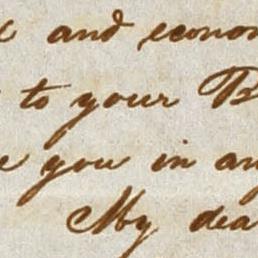 and econom
to your B
you in any
My dea